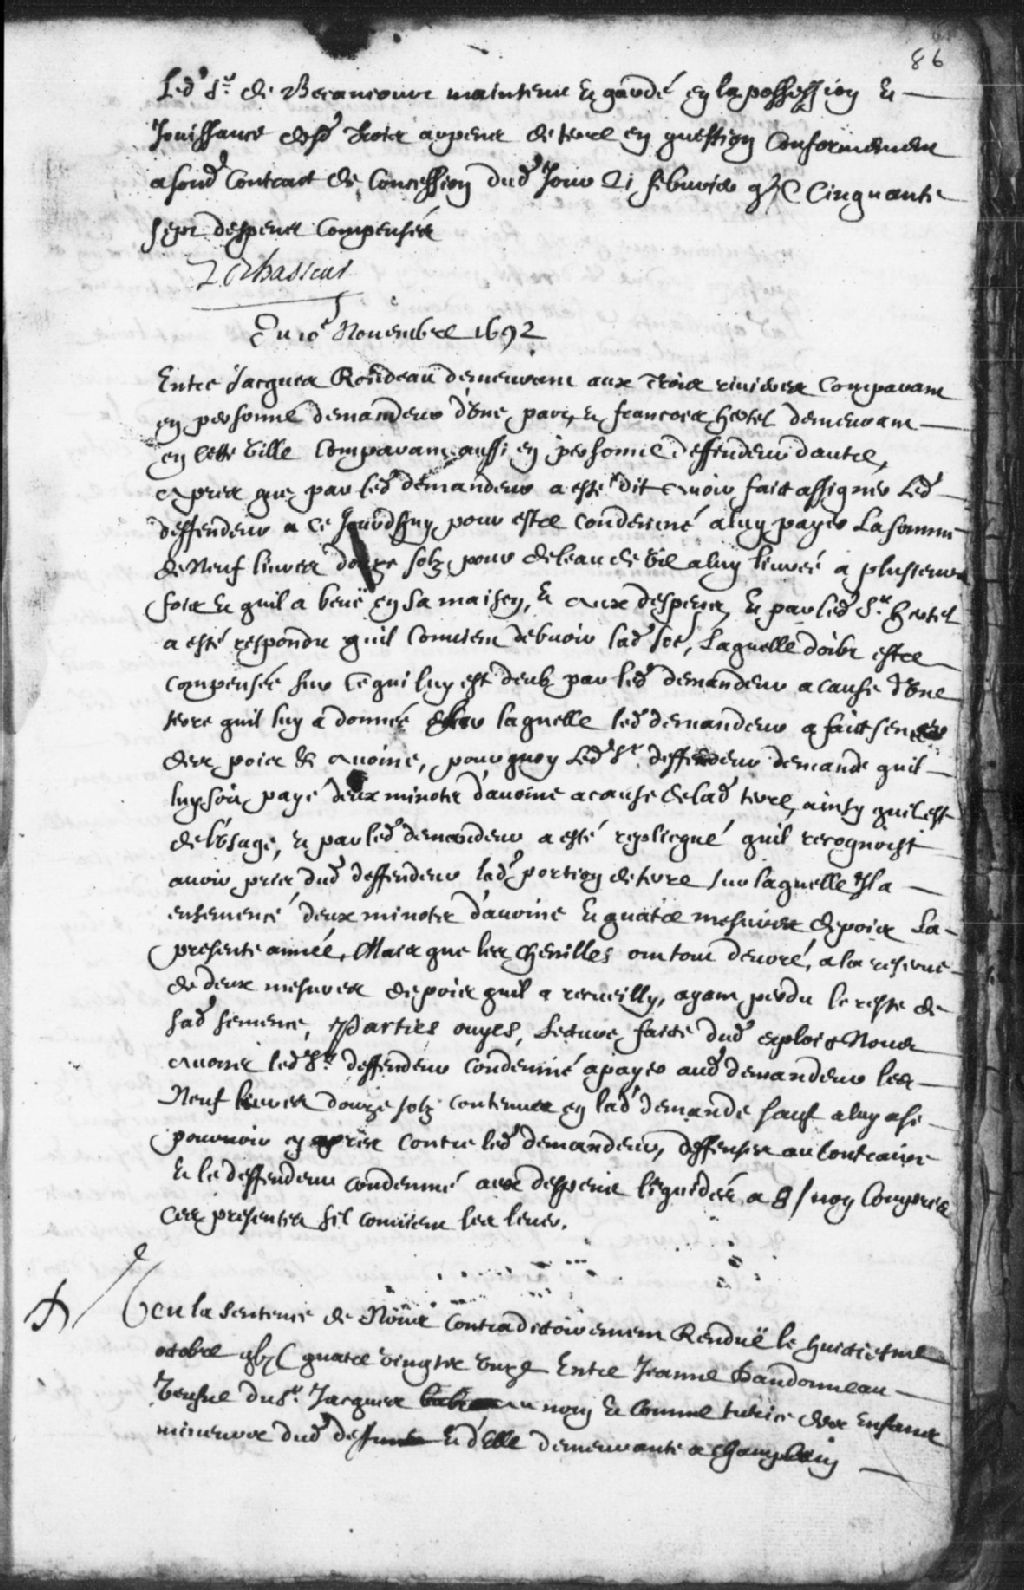 86
Led' Sr. de Becancour maintenu & gardé en la possession &
Jouissance desd' Trois arpens de terre en question Conformement
a sond' Contract de Concession dud' Jour 21 febvrier gbjC Cinquante
sept despens Compensés
Lechasseur
Du 10e Novembre 1692
Entre Jacques Rondeau demeurant aux Trois rivieres Comparant
en personne demandeur d'Une part, & francois hertel demeurant
en cette Ville Comparant aussi en personne deffendeur d'autre,
Apres que par led' demandeur a esté dit avoir fait assigner Led'
deffendeur a Ce Jourdhuy pour estre condemné a luy payer La somme
de Neuf livres douze solz pour de leau de Vie a luy livrée a plusieurs
fois & quil a beuë en sa maison, & aux despens, & par led' Sr. hertel
a esté respondu quil Convient debvoir lad' soe, Laquelle doibt estre
compensée sur Ce qui luy est deub par led' demandeur a cause d'Une
terre quil luy a donnée sur laquelle led' demandeur a fait semer
des pois & avoine, pourquoy Led' Sr. deffendeur demande quil
luy soit payé deux minots d'avoine a cause de lad' terre, ainsy quil est
de l'Usage, & par led' demandeur a esté replicqué quil recognoist
avoir pris dud' deffendeur lad' portion de terre sur laquelle Il a
ensemencé deux minots d'avoine & quatre mesures de pois La
presente année, Mais que les Chenilles ont tout devoré, a la reserve
de deux mesures de pois quil a recueilly, ayant perdu le reste de
sad' semence, Parties ouyes, Lecture faite dud' exploit Nous
avons led' Sr. deffendeur condemné a payer aud' demandeur les
Neuf livres douze solz contenues en lad' demande sauf a luy a se
pourvoir cy apres contre led' demandeur, deffenses au Contraire
& le deffendeur condemné aux despens liquidés a non Compris
Ces presentes sil convient les lever.
Veu la Sentence de Nous Contradictoirement Renduë le huictiesme
octobre gbjC quatre vingts Unze Entre Jeanne Dandonneau
Veufve du Sr. Jacques au nom & Comme tutrice des Enfans
mineurs dud' defunt & d'Elle demeurante a Champlain